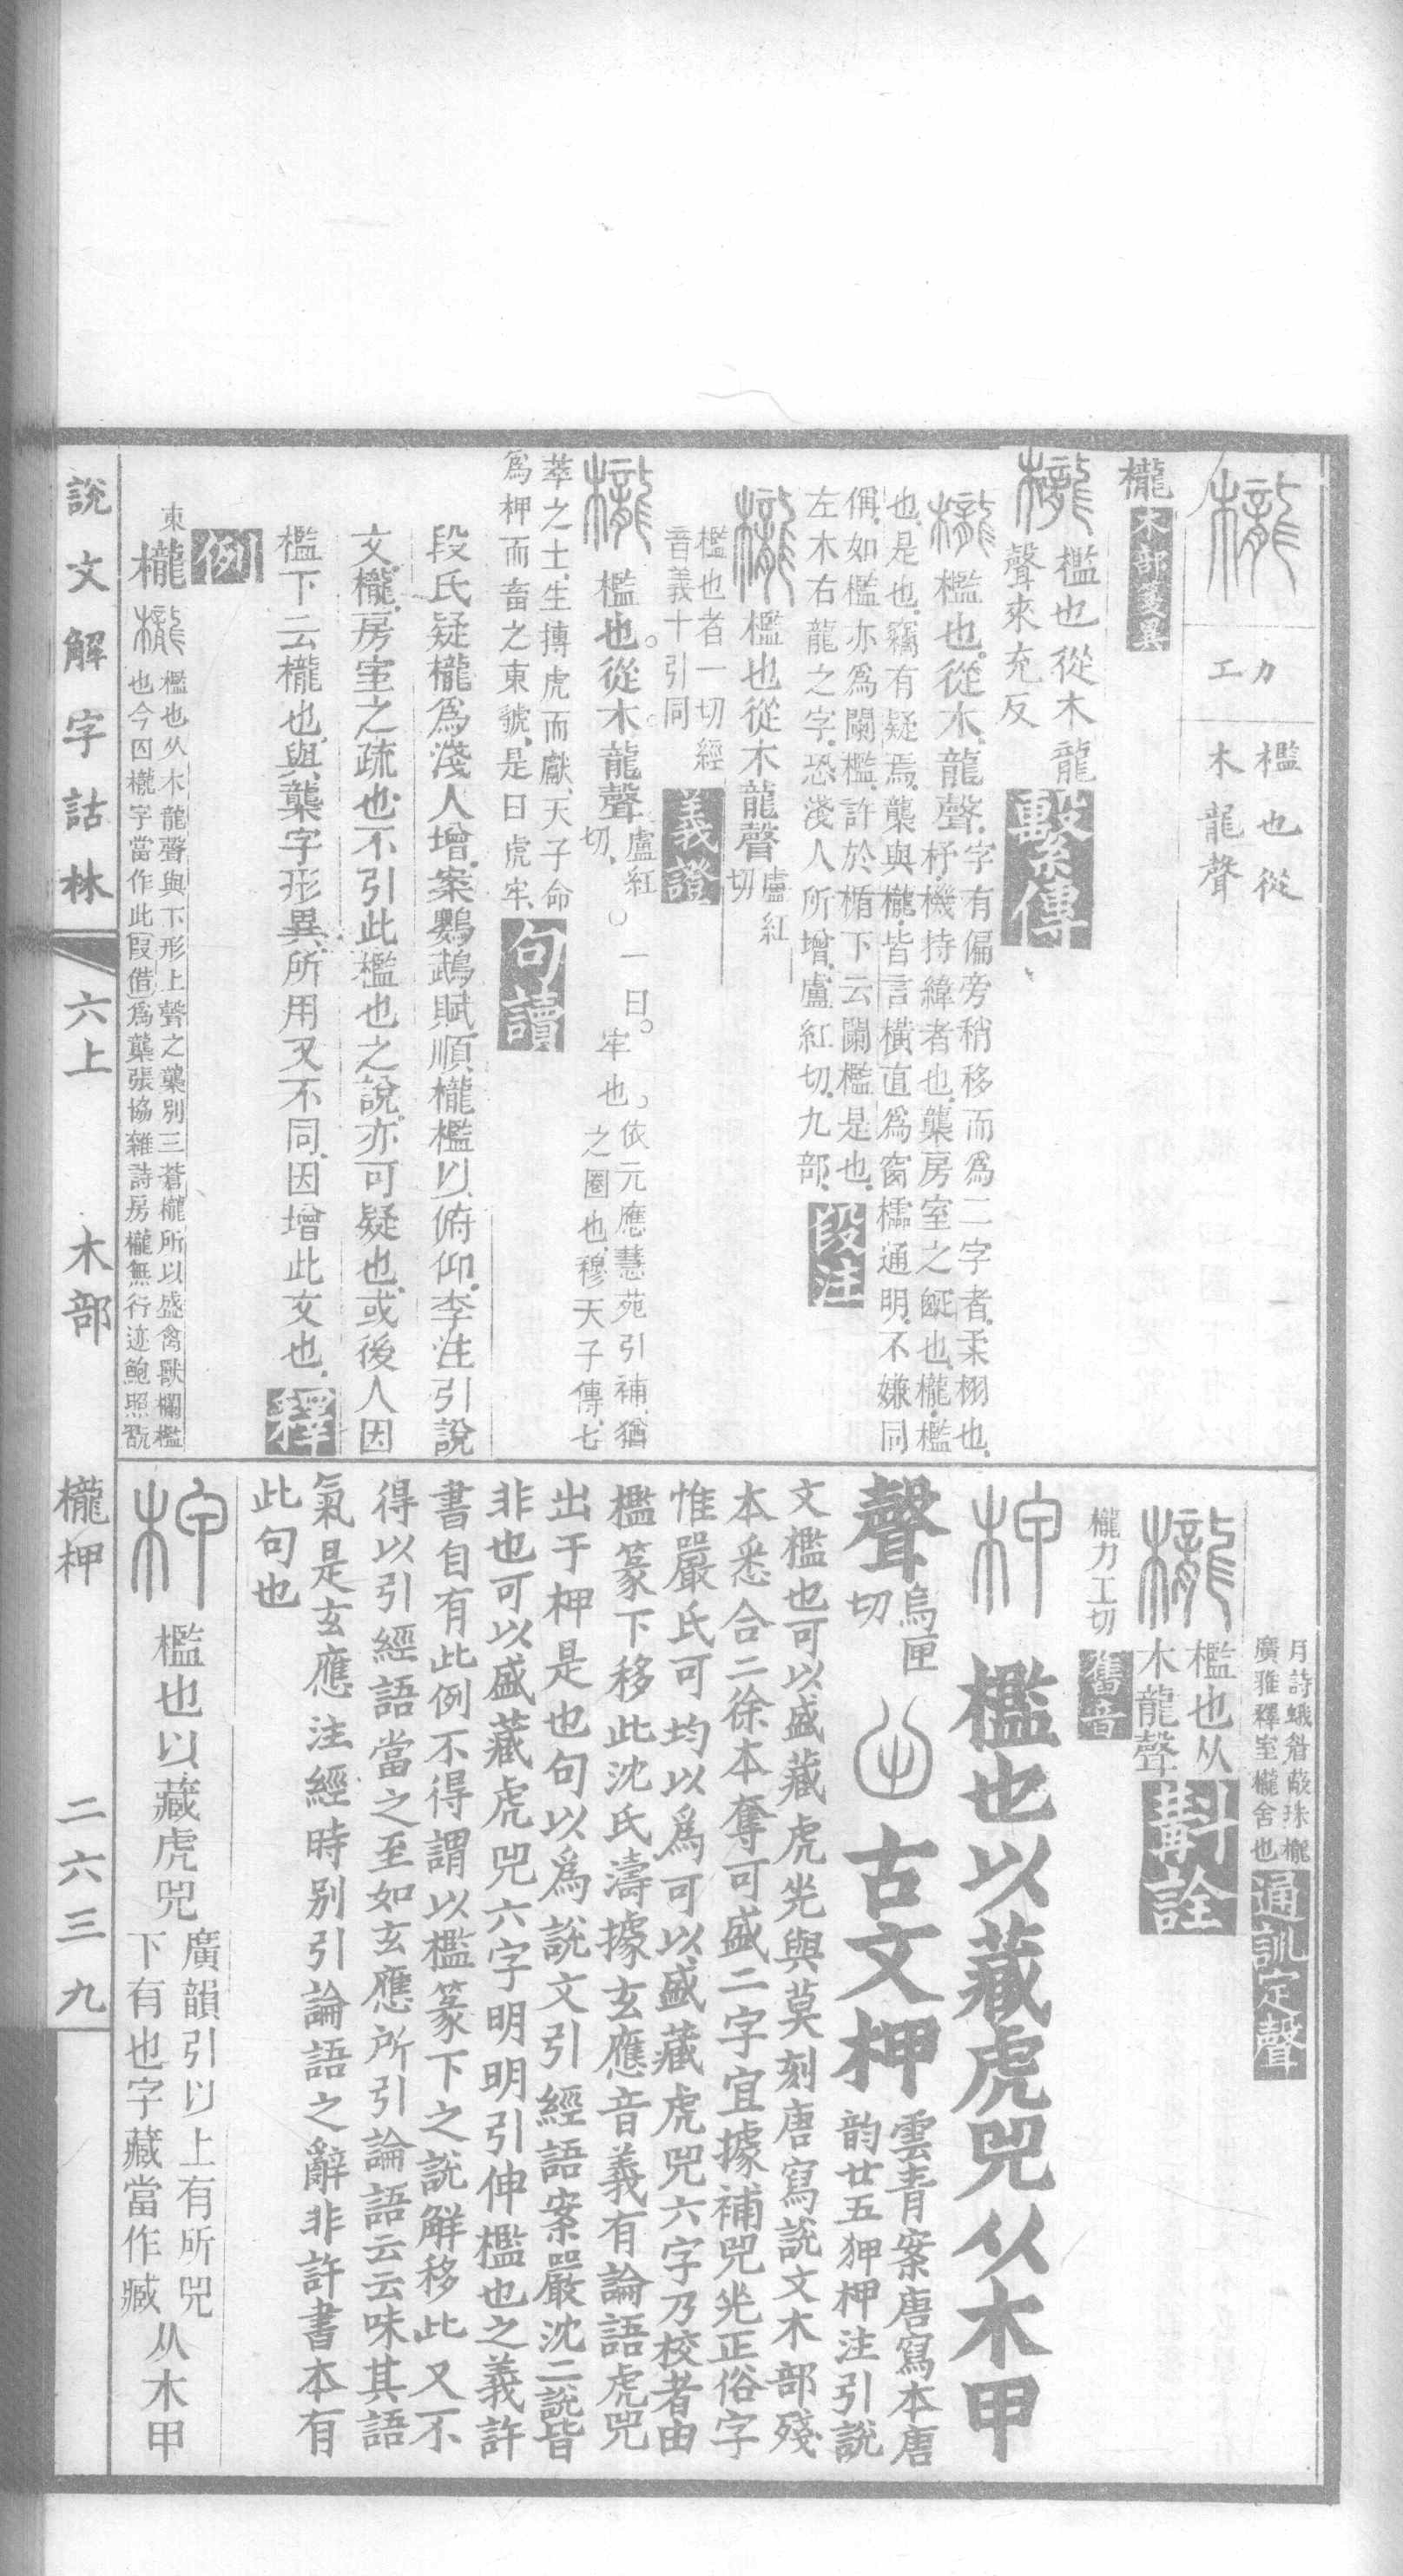 櫳
力工
檻也從
木龍聲
櫳木部箋異
櫳檻也從木龍
聲來充反繫傳
櫳檻也從木龍聲字有偏旁稍移而爲二字者柔栩也
杼機持緯者也龒房室之䟽也櫳檻
也是也竊有疑焉龒與櫳皆言橫直爲窗櫺通明不嫌同
偁如檻亦爲闌檻許於楯下云闌檻是也
左木右龍之字恐淺人所增盧紅切九部段注
櫳檻也從木龍聲盧紅切
檻也者一切經
音義十引同義證
櫳檻也從木龍聲盧紅切○一曰牢也依元應慧苑引補猶
之圈也穆天子傳七
萃之士生搏虎而獻天子命
爲柙而畜之東虢是曰虎牢句讀
段氏疑櫳爲淺人增案鸚鵡賦順櫳檻以俯仰李注引說
文櫳房室之疏也不引此檻也之說亦可疑也或後人因
檻下云櫳也與龒字形異所用又不同因增此文也釋
例
東櫳櫳檻也从木龍聲與下形上聲之龒別三蒼櫳所以盛禽獸欄檻
也今囚櫳字當作此叚借爲龒張協雜詩房櫳無行迹鮑照翫
月詩蛾眉蔽珠櫳
廣雅釋室櫳舍也通訓定聲
櫳檻也从
木龍聲斠詮
櫳力工切舊音
柙檻也以藏虎兕从木甲
聲烏匣切古文柙雲青案唐寫本唐
韵廿五狎柙注引說
文檻也可以盛藏虎兕與莫刻唐寫說文木部殘
本悉合二徐本奪可盛二字宜據補兕兕正俗字
惟嚴氏可均以爲可以盛藏虎兕六字乃校者由
檻篆下移此沈氏濤據玄應音義有論語虎兕
出于柙是也句以爲說文引經語案嚴沈二說皆
非也可以盛藏虎兕六字明明引伸檻也之義許
書自有此例不得謂以檻篆下之說解移此又不
得以引經語當之至如玄應所引論語云云味其語
氣是玄應注經時别引論語之辭非許書本有
此句也
柙檻也以藏虎兕廣韻引以上有所兕
下有也字藏當作臧从木甲
說文解字詁林
六上
木部
櫳柙
二六三九